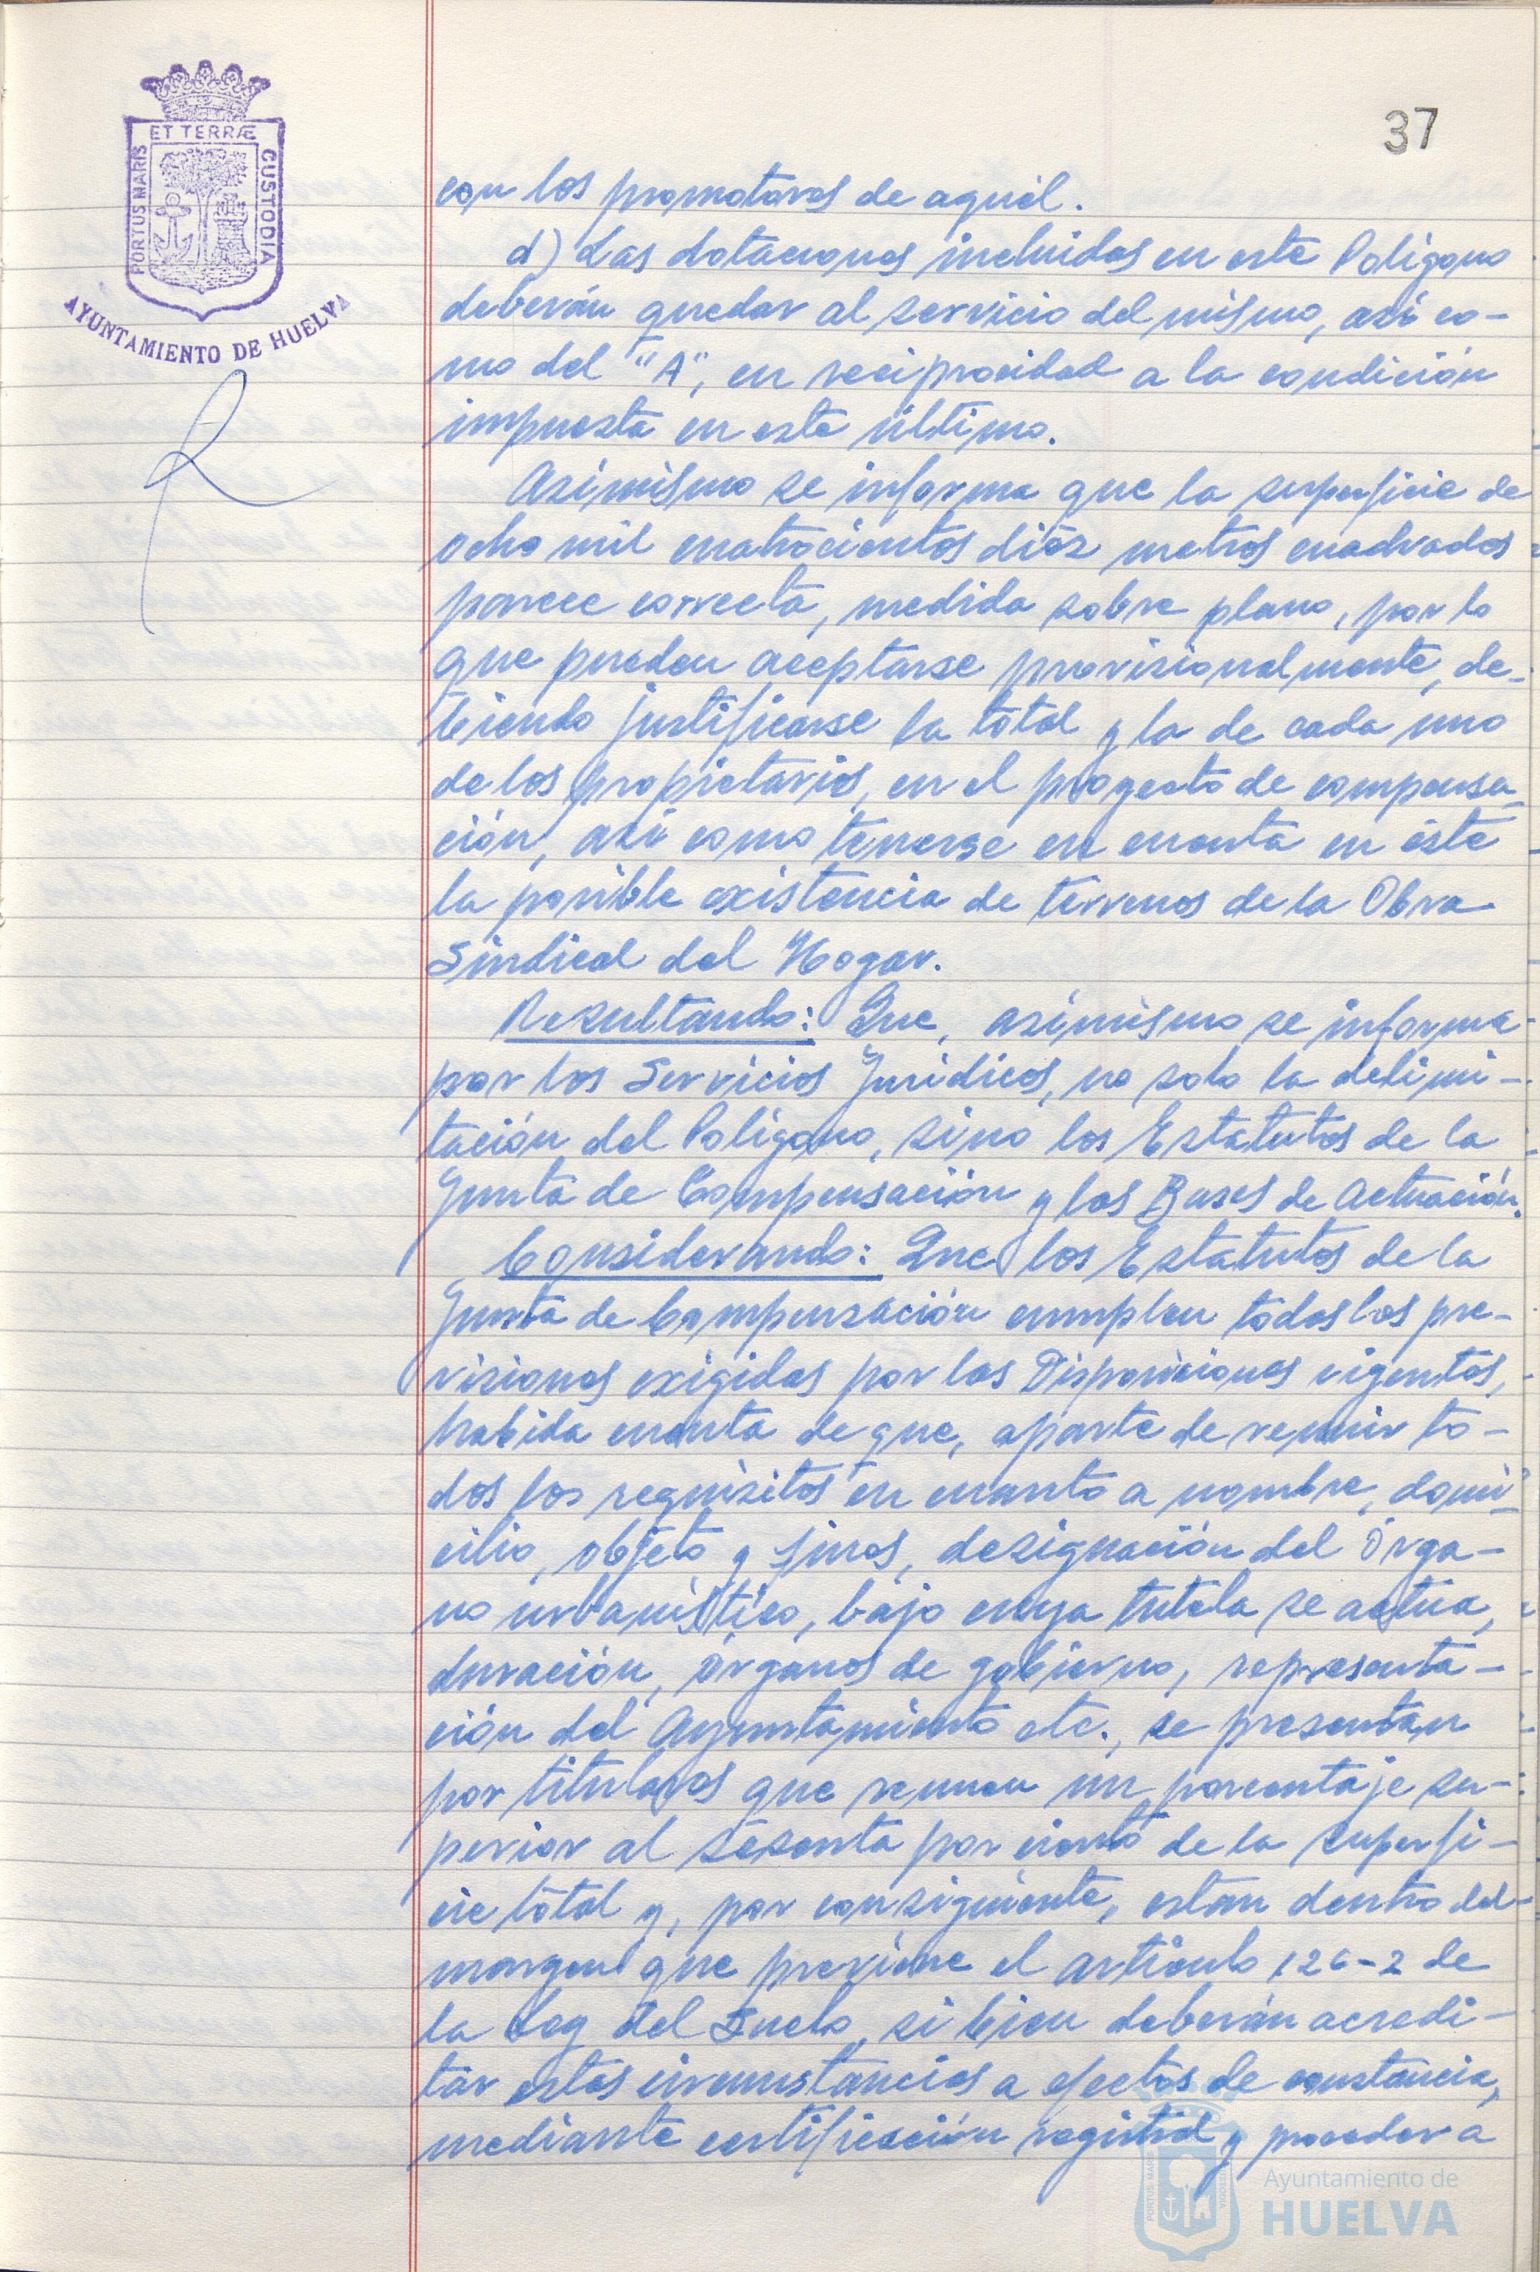 37
ET TERRÆ
PORTUS MARIS
CUSTODIA
AYUNTAMIENTO DE HUELVA
con los promotores de aquél.
d) Las dotaciones incluidas en este Polígono
deberán quedar al servicio del mismo, así co-
mo del "A", en reciprocidad a la condición
impuesta en este último.
Asimismo se informa que la superficie de
ocho mil cuatrocientos diéz metros cuadrados
parece correcta, medida sobre plano, por lo
que pueden aceptarse provisionalmente, de-
biendo justificarse la total y la de cada uno
de los propietarios, en el proyecto de compensa-
ción, así como tenerse en cuenta en éste
la posible existencia de terrenos de la Obra
Sindical del Hogar.
Resultando: Que, asimismo se informa
por los Servicios Jurídicos, no solo la delimi-
tación del Polígono, sino los Estatutos de la
Junta de Compensación y las Bases de Actuación.
Considerando: Que los Estatutos de la
Junta de Compensación cumplen todas las pre-
visiones exigidas por las Disposiciones vigentes,
habida cuenta de que, aparte de reunir to-
dos los requisitos en cuanto a nombre, domi-
cilio, objeto y fines, designación del Órga-
no urbanístico, bajo cuya tutela se actua,
duración, órganos de gobierno, representa-
ción del Ayuntamiento etc., se presentan
por titulares que reunen un porcentaje su-
perior al sesenta por ciento de la superfi-
cie total y, por consiguiente, estan dentro del
margen que previene el artículo 126-2 de
la Ley del Suelo, si bien deberán acredi-
tar estas circunstancias a efectos de constancia,
mediante certificación registral y proceder a
Ayuntamiento de
HUELVA